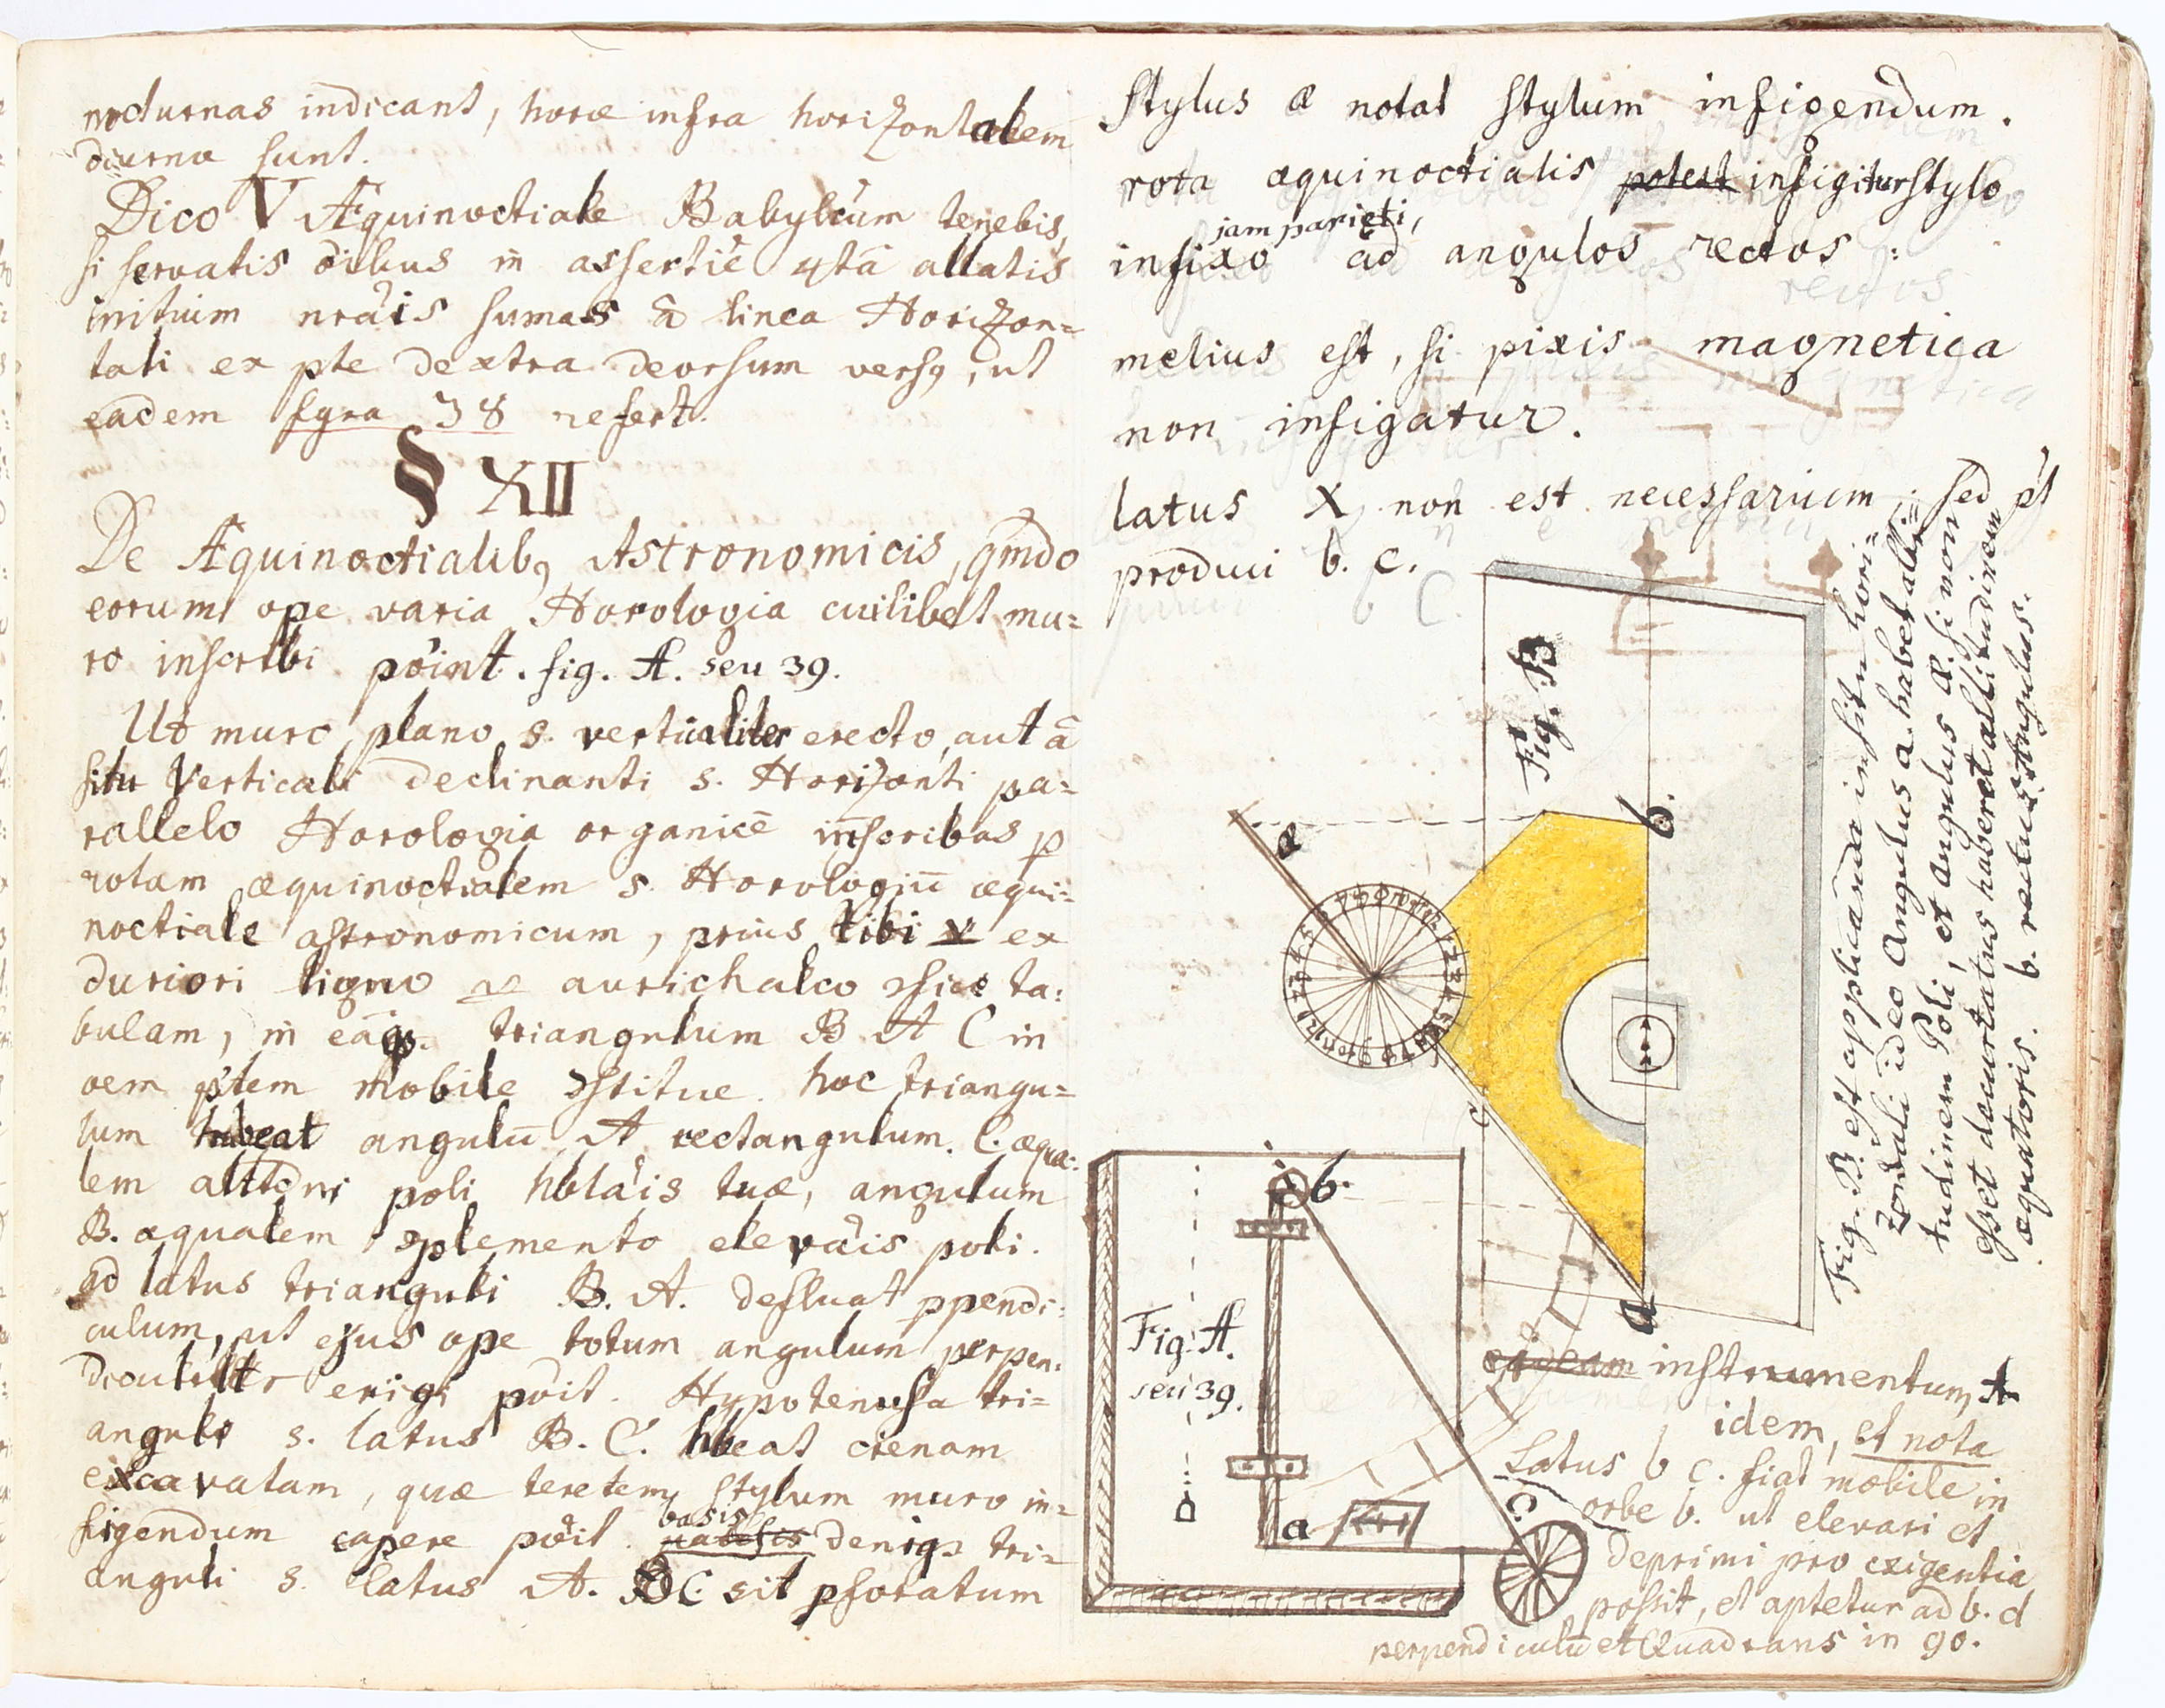 nocturnas indicant, horæ infra horizontalem
diurnæ sunt.
Dico V Æquinoctiale Babylcum tenebis,
si servatis oibus in assertiōe 4tâ allatis
initium nrāis sumas â linea Horizon=
tali ex pte dextra deorsum versq, ut
eadem fgra 38 refert.
§ XII
De Æquinoctialibq Astronomicis, qmdo
eorum ope varia Horologia cuilibet mu=
ro inscribi point. fig. A. seu 39.
Ut muro plano s. verticaliter erecto, aut â
situ Verticali declinanti s. Horizonti pa=
rallelo Horologia organicē inscribas p
rotam æquinoctialem s. Horologiū æqui=
noctiale astronomicum, prius tibi ex
duriori ligno vel aurichalco ta:
bulam, in triangulum B A C in
oem ptem mobile 9stitue. hoc triangu=
lum habeat angulū A rectangulum. C. æqua:
lem alttdni poli hblāis tuæ, angulum
B. æqualem 9plemento elevāis poli.
ad latus trianguli B. A. defluat ppendi:
culum, ut ejus ope totum angulum perpen:
erigi point. Hypotenusa tri=
anguli s. latus B. C. hbeat crenam
excavatam, quæ teretem stylum muro in=
basis
figendum capere póit. denique tri=
anguli s. latus A. C. sit pforatum
Stylus æ notat stylum infigendum.
rota æquinoctialis potest infigitur stylo
jam parieti,
infixo ad angulos rectos:
melius est, si pixis magnetica
non infigatur.
latus X non est necessarium; sed pt
produci b. c.
Fig. B
b.
æ
c
a
Fig. B. est applicanda in situ hori=
zontali ideo Angulus a. habet alti=
tudinem Poli, et angulus æ. si non
esset decurtatus haberet altitudinem
æquatoris. b. rectus Angulus.
b.
Fig. A.
seu 39.
a
C
instrumentum A
idem, et nota
Latus b c. fiat mobile in
orbe b. ut elevari et
deprimi pro exigentia
possit, et aptetur ad b. d
perpendiculū et Quadrans in 90.